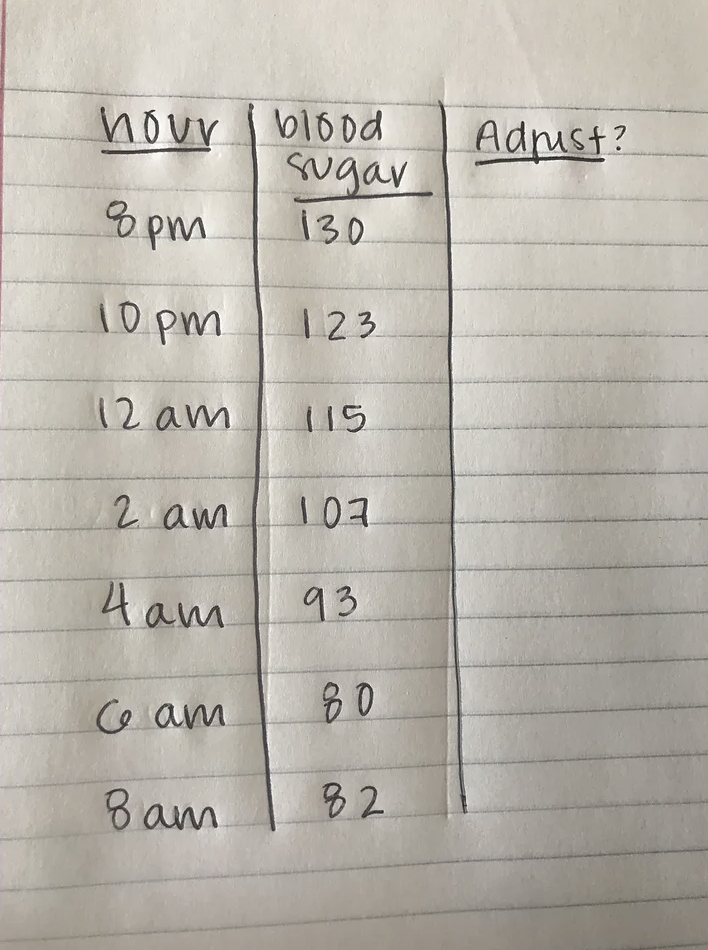 hour blood sugar Adjust?
8pm 130
10 pm 123
12 am 115
2 am 107
4 am 93
6 am 80
8 am 82